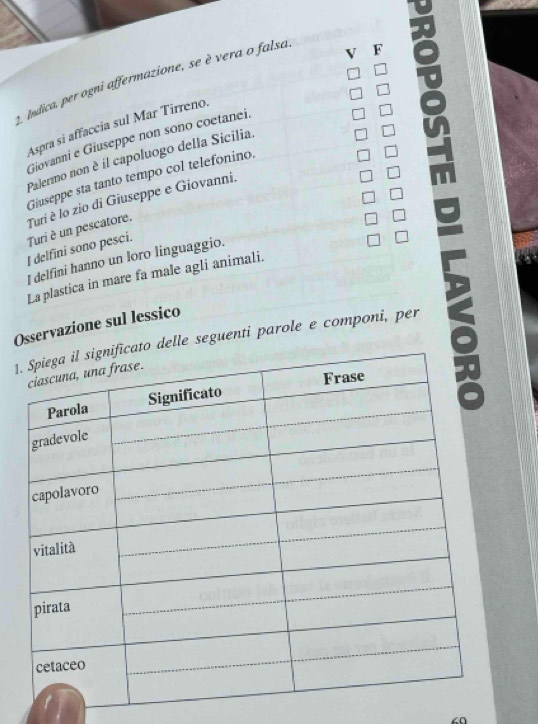 2. Indica, per ogni affermazione, se è vera o falsa.
V F
Aspra si affaccia sul Mar Tirreno.
Giovanni e Giuseppe non sono coetanei.
Palermo non è il capoluogo della Sicilia.
Giuseppe sta tanto tempo col telefonino.
Turi è lo zio di Giuseppe e Giovanni.
Turi è un pescatore.
I delfini sono pesci.
I delfini hanno un loro linguaggio.
La plastica in mare fa male agli animali.
Osservazione sul lessico
1. Spiega il significato delle seguenti parole e componi, per
ciascuna, una frase.
Parola Significato Frase
gradevole
capolavoro
vitalità
pirata
cetaceo
PROPOSTE DI LAVORO
69